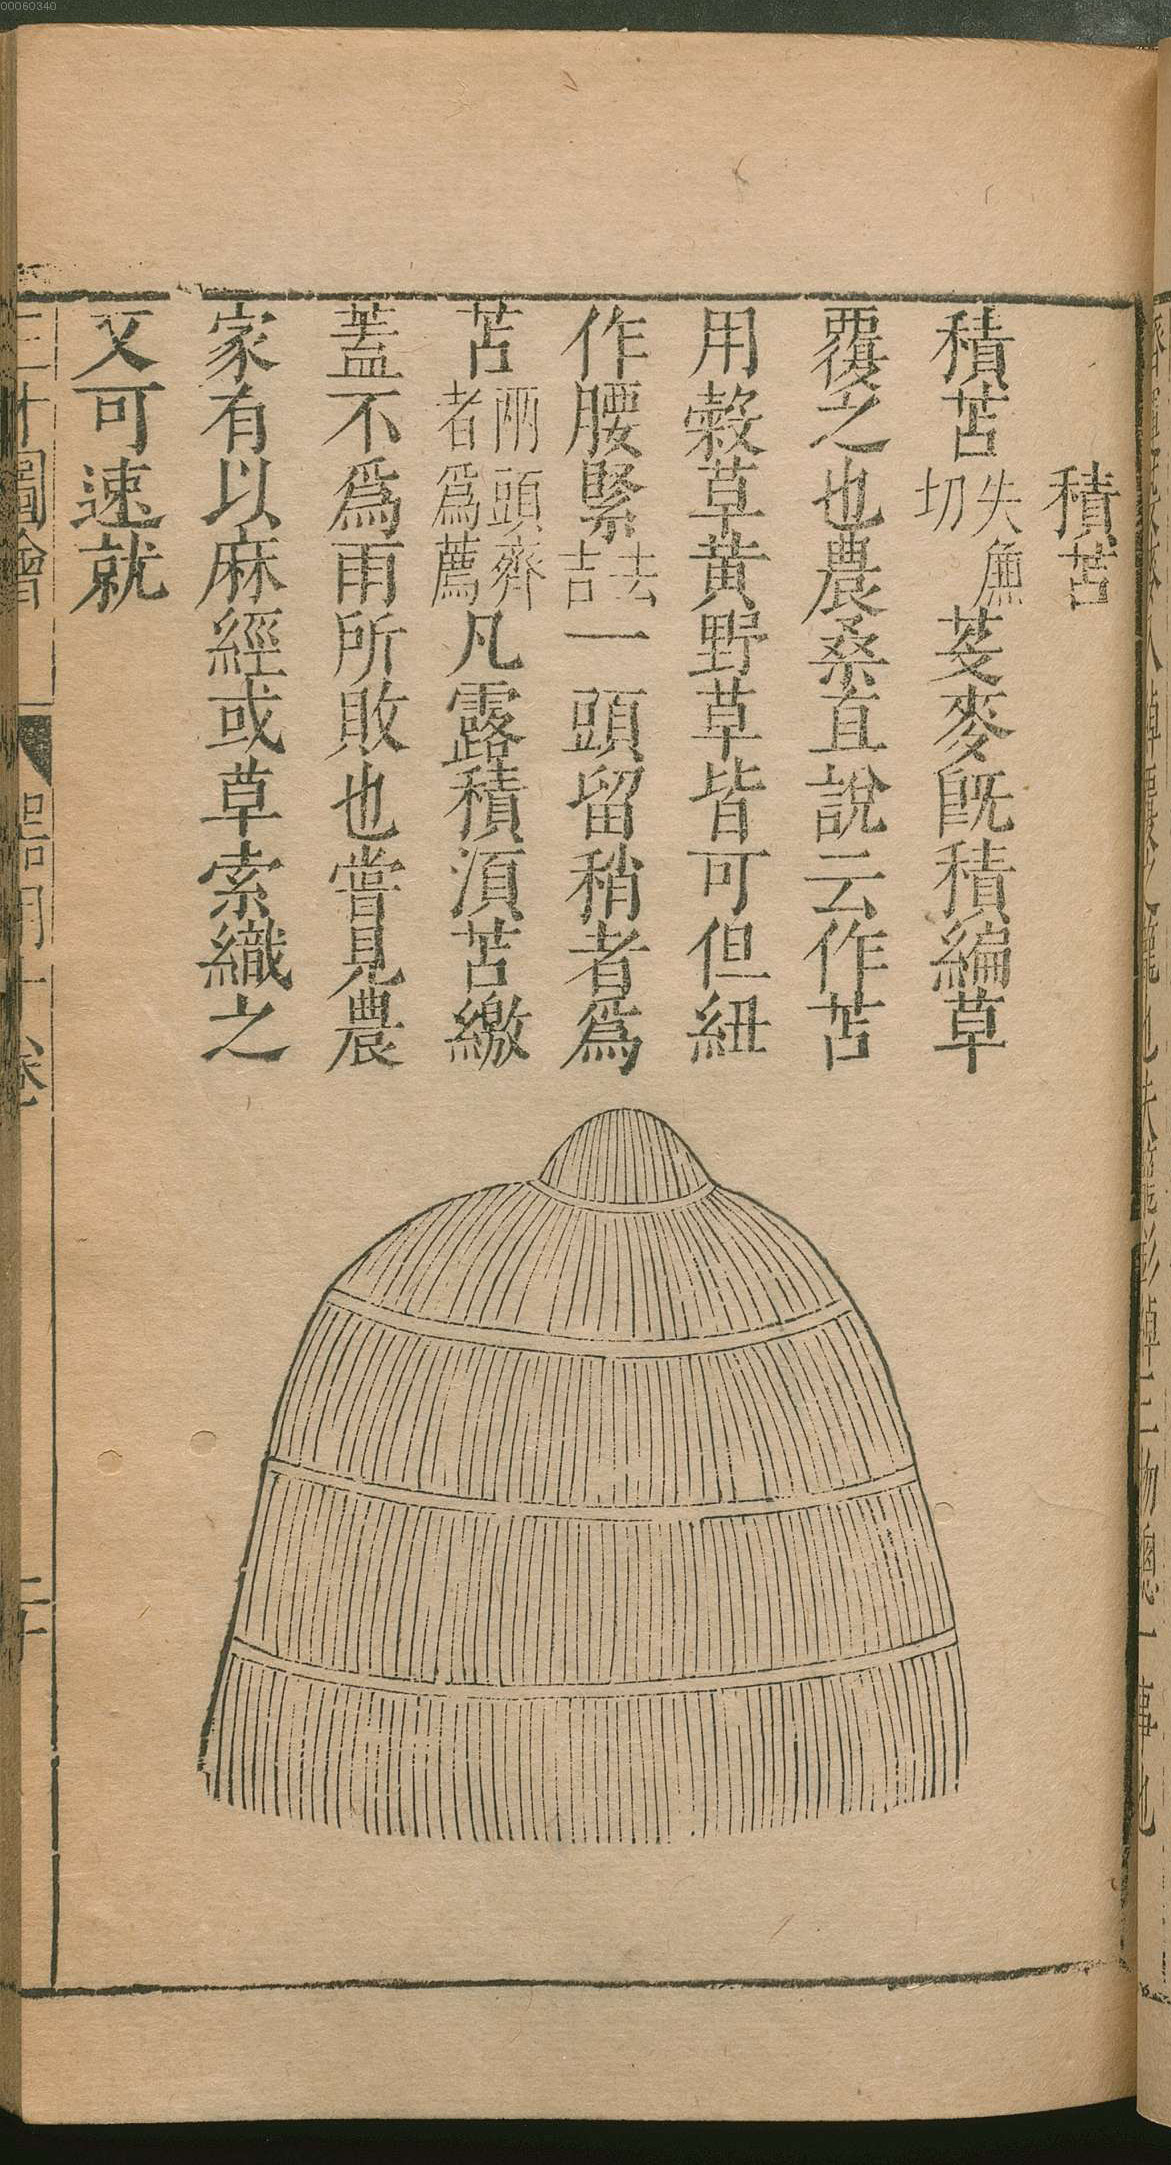 00060340
積苫
積苫失㢘切茭麥既積編草
覆之也農桑直說云作苫
用穀草黄野草皆可但紐
作腰緊去吉一頭留稍者爲
苫兩頭齊者爲薦凡露積湏苫繳
蓋不爲雨所敗也嘗見農
家有以麻經或草索織之
又可速就
三才圖會
器用十卷
二十